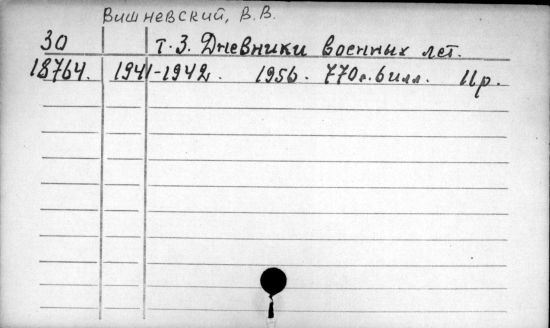 Вишневский, В.В.
30 т. 3. Дневники военных лет.
18764. 1941-1942. 1956. 770с. 6 илл. 11р.